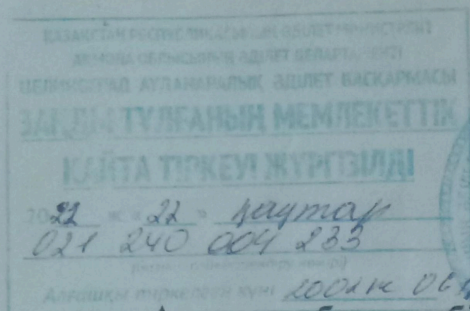 ҚАЗАҚСТАН РЕСПУБЛИКАСЫНЫҢ ӘДІЛЕТ МИНИСТРЛІГІ
АҚМОЛА ОБЛЫСЫНЫҢ ӘДІЛЕТ ДЕПАРТАМЕНТІ
ЦЕЛИНОГРАД АУДАНАРАЛЫҚ ӘДІЛЕТ БАСҚАРМАСЫ
ЗАҢДЫ ТҰЛҒАНЫҢ МЕМЛЕКЕТТІК
ҚАЙТА ТІРКЕУІ ЖҮРГІЗІЛДІ
2022 ж «22» қаңтар
021 240 004 233
Алғашқы тіркелген күні 2002ж 06